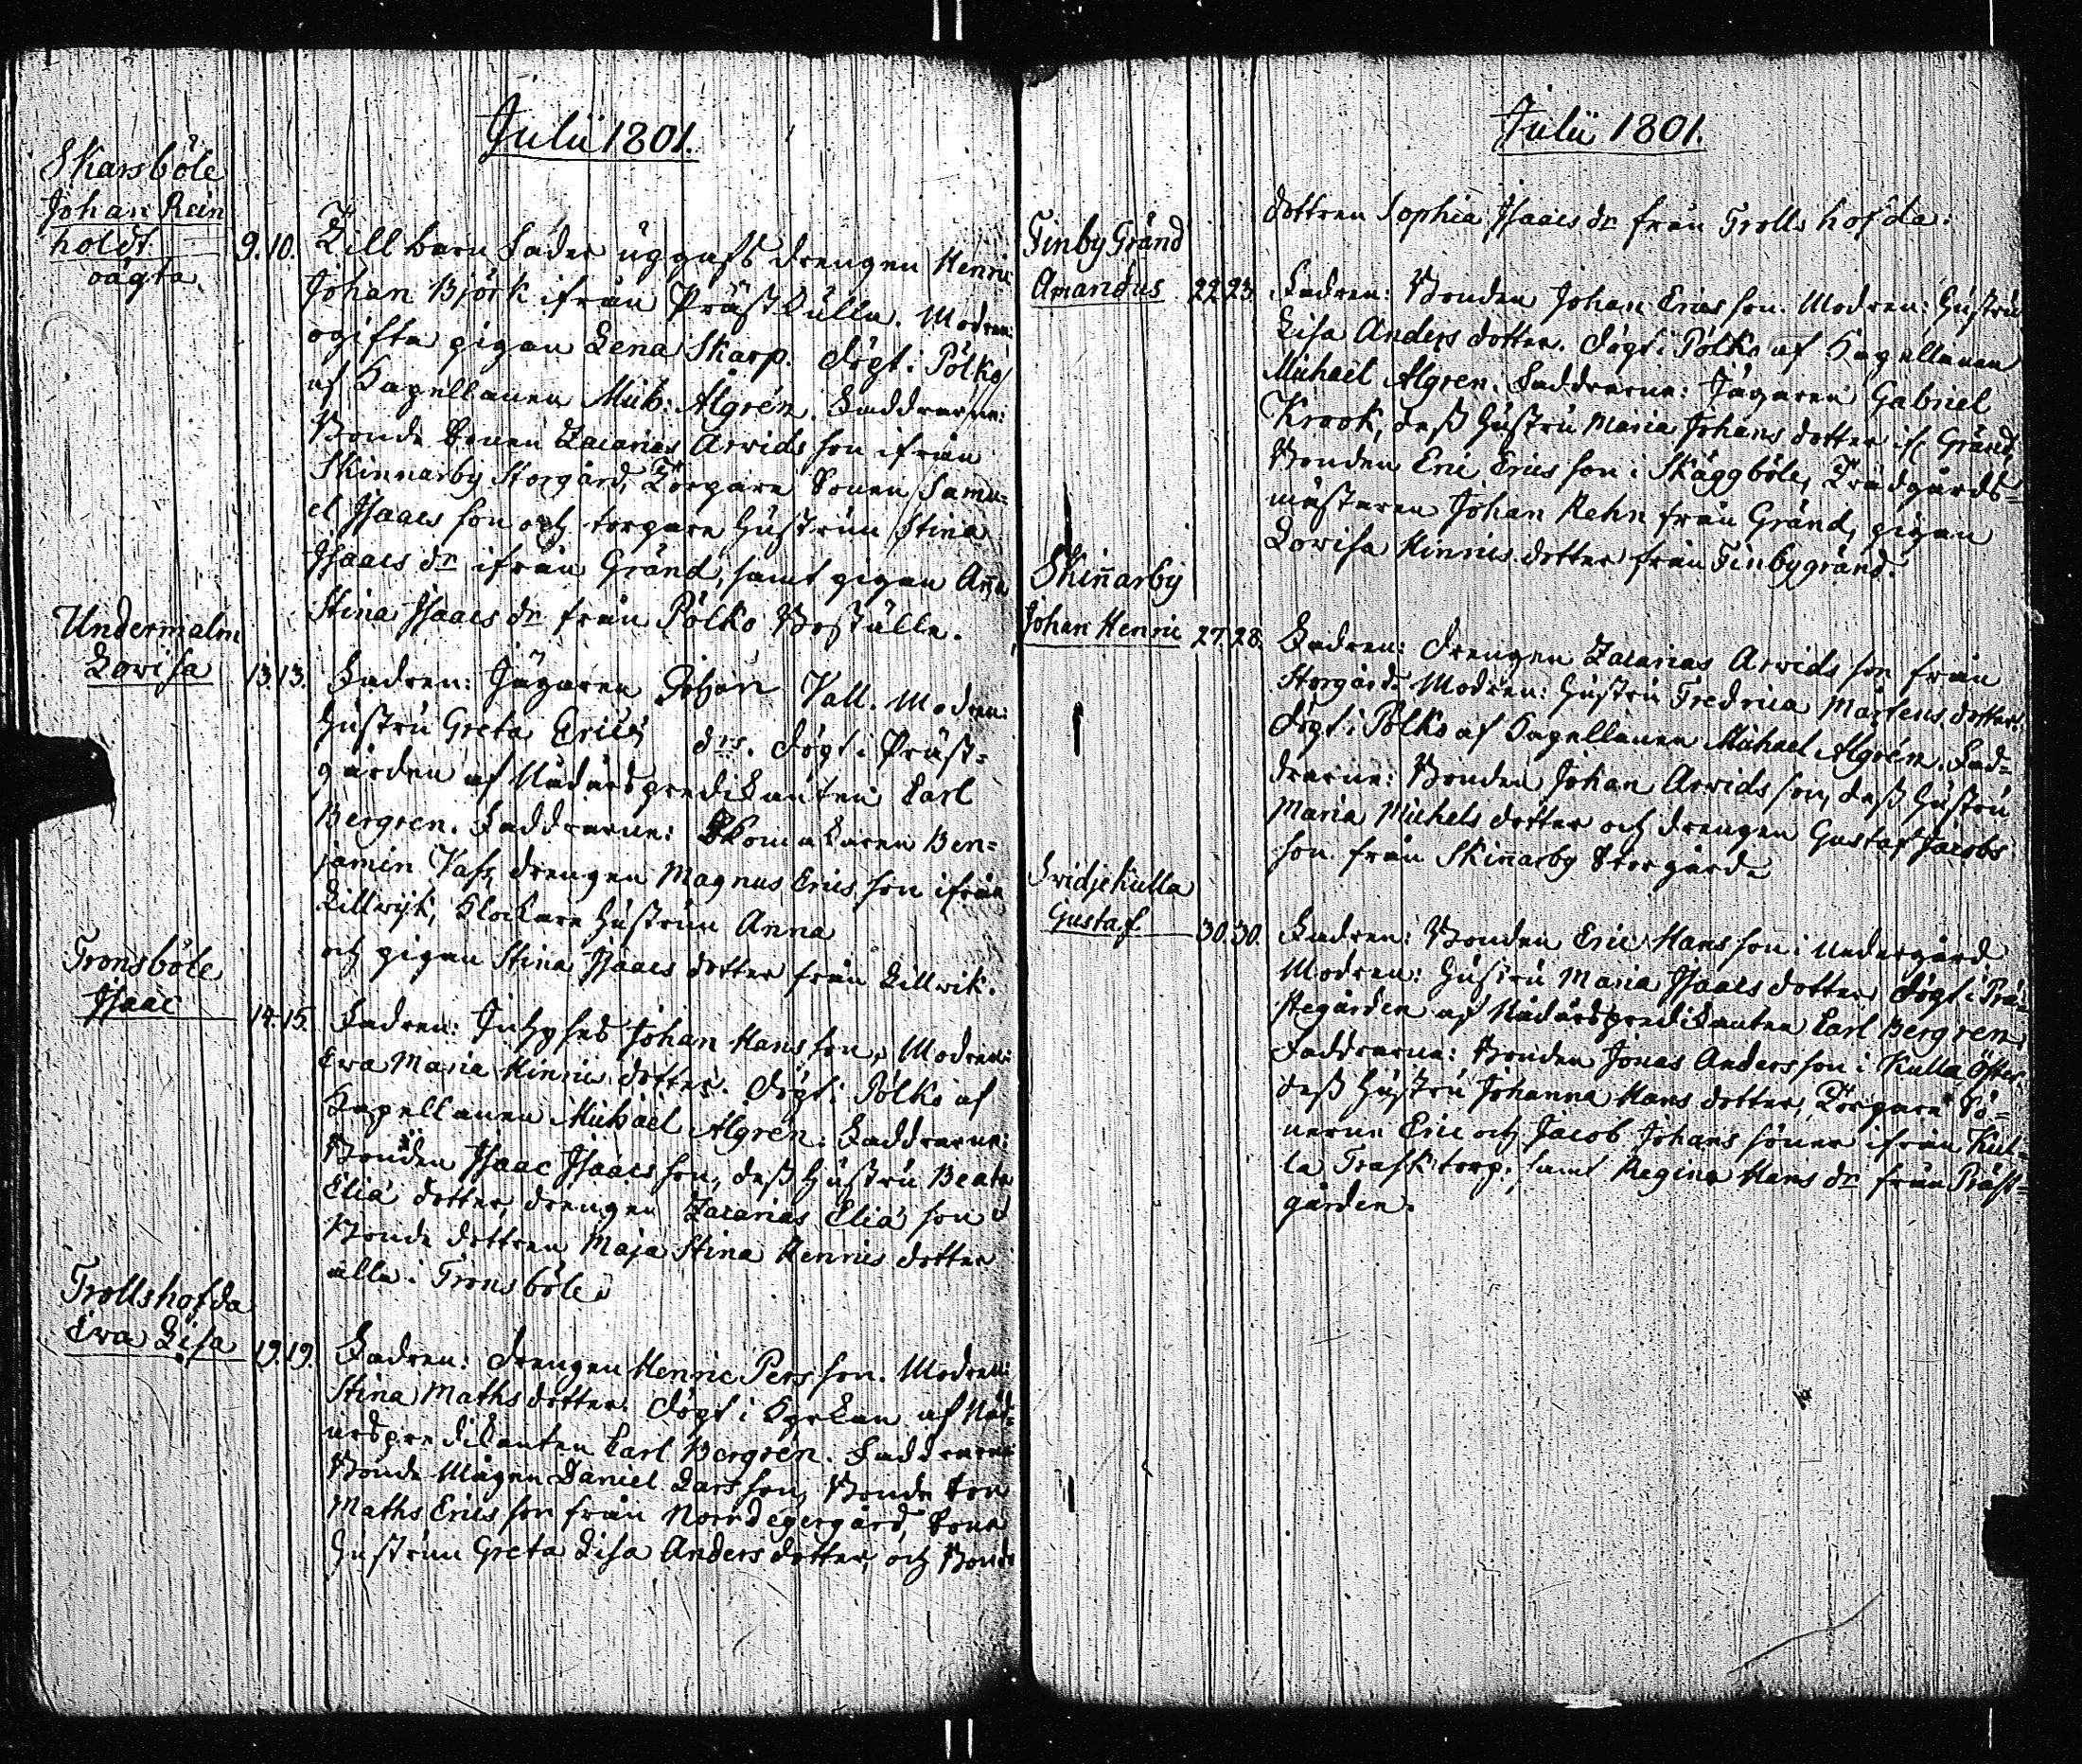 Julii 1801.
Skarsböle
Johan Rein
holdt
oägta
9. 10.
Till barn Fader uppgafs drengen Henric
Johan Björk ifrån Prästkulla. Modren:
ogifta pigan Lena Skarp. döpt i Pölkö
af Kapellanen Mich: Algrén. Faddrarne:
Bonde Sonen Zacarias Arvids son ifrån
Skinnarby Storgård, Torpare Sonen Samu=
el Isaacs son och torpare hustrun Stina
Isaacs dr ifrån Gränd, samt pigan Anna
Stina Isaacs dr från Pölkö Boställe.
Undermalm
Lovisa
13. 13.
Fadren: Jägaren Johan Vall. Modren:
hustru Greta Erics drs. döpt i Präst=
gården af Nådårspredikanten Carl
Bergren. Faddrarne: Skomakaren Ben=
jamin Vass, drengen Magnus Erics son ifrån
Lillwijk, Klockare hustrun Anna
och pigan Stina Isaacs dotter från Lillvik.
Tronsböle
Isaac
14. 15.
Fadren: Inhyses Johan Hans son, Modren:
Eva Maria Hinrics dotter. döpt i Pölkö af
Kapellanen Michael Algrén. Faddrarne:
Bonden Isaac Isaacs son, dess hustru Beata
Eliæ dotter, drengen Zacarias Eliæ son o
Bonde dottren Maja Stina Henrics dotter
alla i Tronsböle.
Trollshofda
Eva Lisa
19. 19.
Fadren: drengen Henric Pers son. Modren:
Stina Maths dotter. döpt i Kyrkan af Nåd=
årspredikanten Carl Bergrén. Faddrarne
Bonde Mågen Daniel Lars son, Bonde Son
Maths Erics son från Norrdegergård, Sone
hustrun Greta Lisa Anders dotter, och Bonde
Julii 1801.
dottren Sophia Isaacs dr från Trollshofda.
Finby Gränd
Amandus
22. 23.
Fadren: Bonden Johan Erics son. Modren: hustru
Lisa Anders dotter. döpt i Pölkö af Kapellanen
Michael Algren. Faddrarne: Jägaren Gabriel
Krook, dess hustru Maria Johans dotter ifr. Gränd,
Bonden Eric Erics son i Skäggböle, Trädgårds=
mästaren Johan Rehn från Gränd, pigan
Lovisa Hinrics dotter från Finbygränd.
Skinnarby
Johan Henric
27. 28.
Fadren: drengen Zacarias Arvids son från
Storgård. Modren: hustru Fredrica Mårtens dotter.
döpt i Pölkö af Kapellanen Michael Algrén. Fad=
drarne: Bonden Johan Arvids son, dess hustru
Maria Michels dotter och drengen Gustaf Jacobs
son från Skinnarby Storgårde
Fridjekulla
Gustaf
30. 30.
Fadren: Bonden Eric Hans son i Undergård
Modren: hustru Maria Isaacs dotter döpt i Prä=
stegården af Nådårspredikanten Carl Bergren.
Faddrarne: Bonden Jonas Anders son i Kulla Öster
dess hustru Johanna Hans dotter, Torpare Sö=
nerne Eric och Jacob Johans söner ifrån Kul=
la Trask torp, samt Regina Hans dr från Präst=
gården.